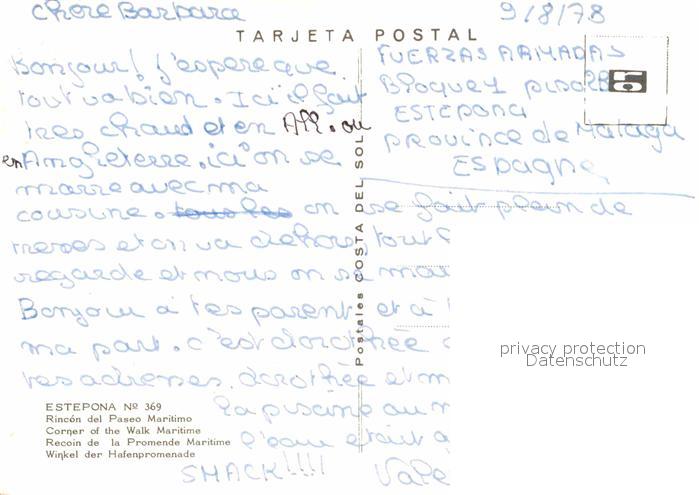 Chère Barbara 9/8/78
TARJETA POSTAL
FUERZAS ARMADAS
Bloque 1 piso
ESTEPONA
province de Malaga
ESPagne
Bonjour! j'espère que
tout va bien. Ici il fait
très chaud et en All. ou
en Angleterre. ici on se
marre avec ma
cousine. on se fait plein de
et on va dehors, tout
regarde et nous on se mar
Bonjour à tes parent et à
ma part. c'est dorothée
tes adresses. dorothée et m
la piscine au
l'eau était
SMACK!!!! Vale
Postales COSTA DEL SOL
ESTEPONA Nº 369
Rincón del Paseo Maritimo
Corner of the Walk Maritime
Recoin de la Promende Maritime
Winkel der Hafenpromenade
privacy protection
Datenschutz